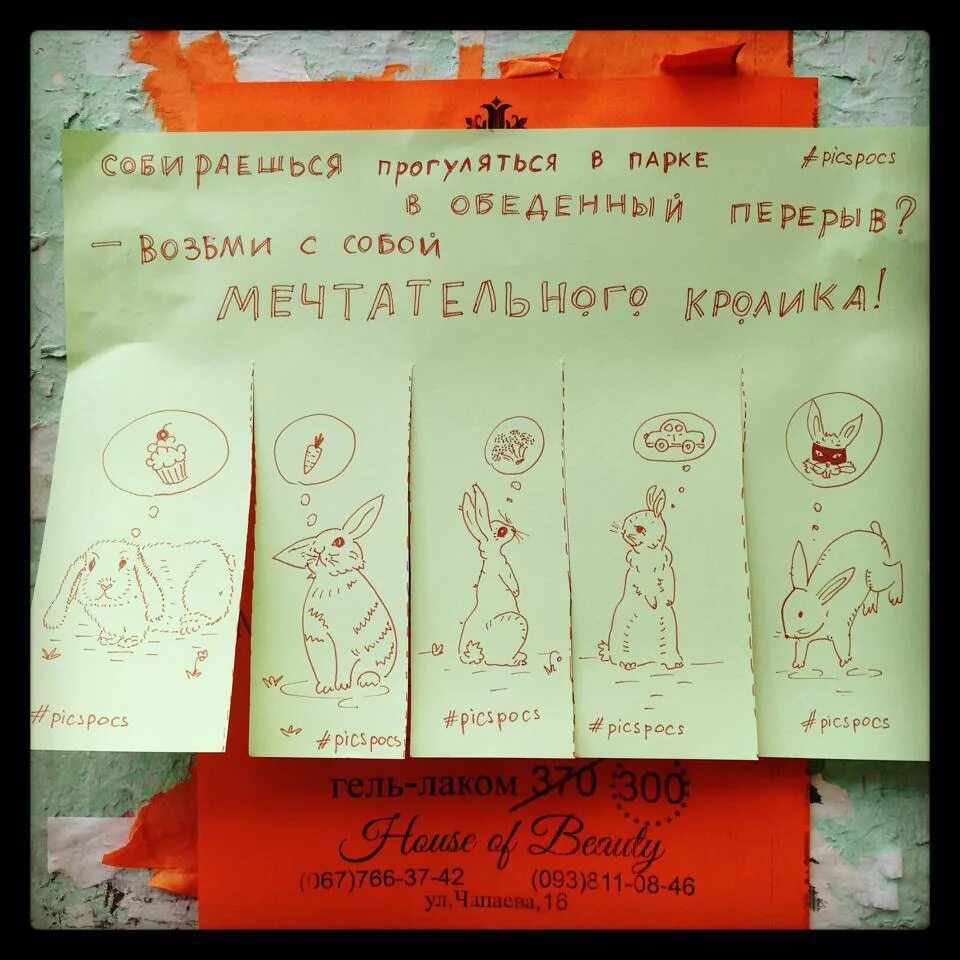 СОБИРАЕШЬСЯ ПРОГУЛЯТЬСЯ В ПАРКЕ #picspocs
В ОБЕДЕННЫЙ ПЕРЕРЫВ?
– ВОЗЬМИ С СОБОЙ
МЕЧТАТЕЛЬНОГО КРОЛИКА!
#picspocs
#picspocs
#picspocs
#picspocs
#picspocs
гель-лаком 370 300
House of Beauty
(067)766-37-42 (093)811-08-46
ул.Чапаева,16